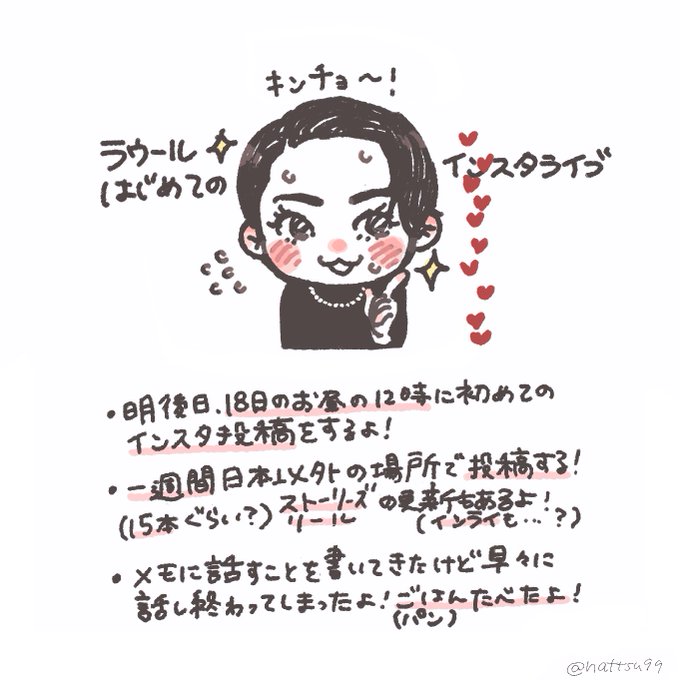 キンチョ〜！
ラウール
はじめての
インスタライブ
・明後日、18日のお昼の12時に初めての
インスタ投稿をするよ！
・一週間日本以外の場所で投稿する！
(15本ぐらい？) ストーリーズ リール の更新もあるよ！
(インライも…？)
・メモに話すことを書いてきたけど早々に
話し終わってしまったよ！ごはんたべたよ！
(パン)
@hattsu99